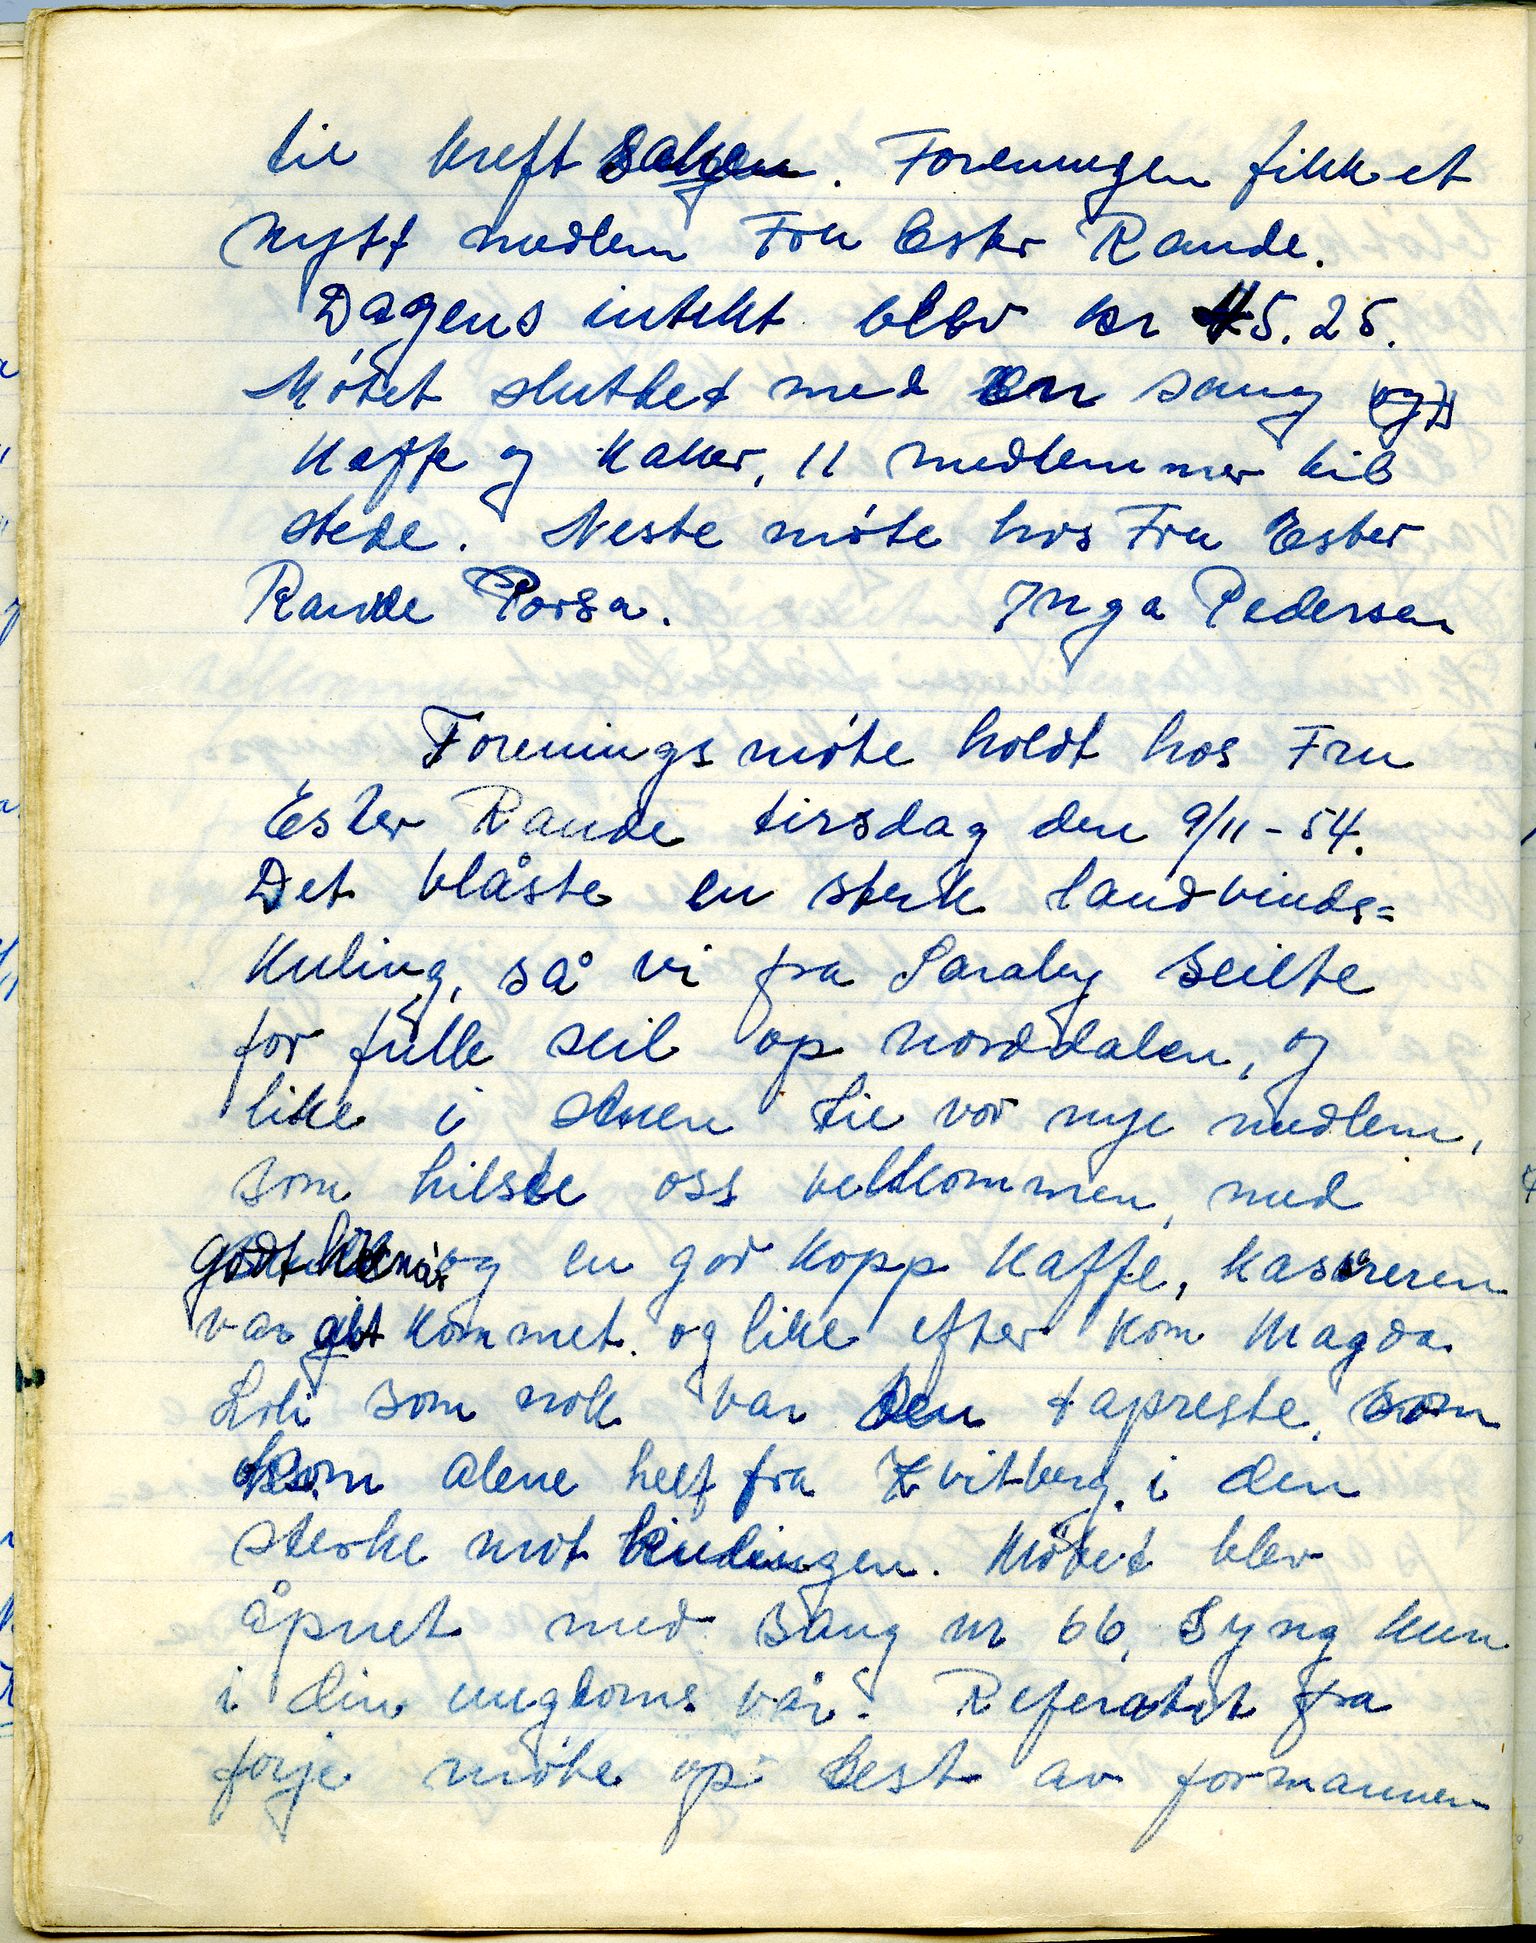 til kreft saken. Foreningen fikk et
nytt medlem Fru Ester Rande.
Dagens intekt blev kr 45.25.
Møtet sluttet med en sang og
Kaffe og kaker, 11 medlemmer til
stede. Neste møte hos Fru Ester
Rande Porsa. Inga Pedersen
Forenings møte holdt hos Fru
Ester Rande tirsdag den 9/11-54.
Det blåste en sterk landvinds=
kuling, så vi fra Saraby seilte
for fulle seil op norddalen, og
like i stuen til vor nye medlem,
som hilste oss velkommen, med
godt og en god kopp kaffe, kasereren
var kommet. og like efter kom Magda
som nok var den tapreste, som
kom alene helt fra Kvitberg, i den
sterke mot kulingen. Møtet blev
åpnet med sang nr 66, Syng kun
i din ungdoms vår. Referatet fra
forje møte op lest av formannen